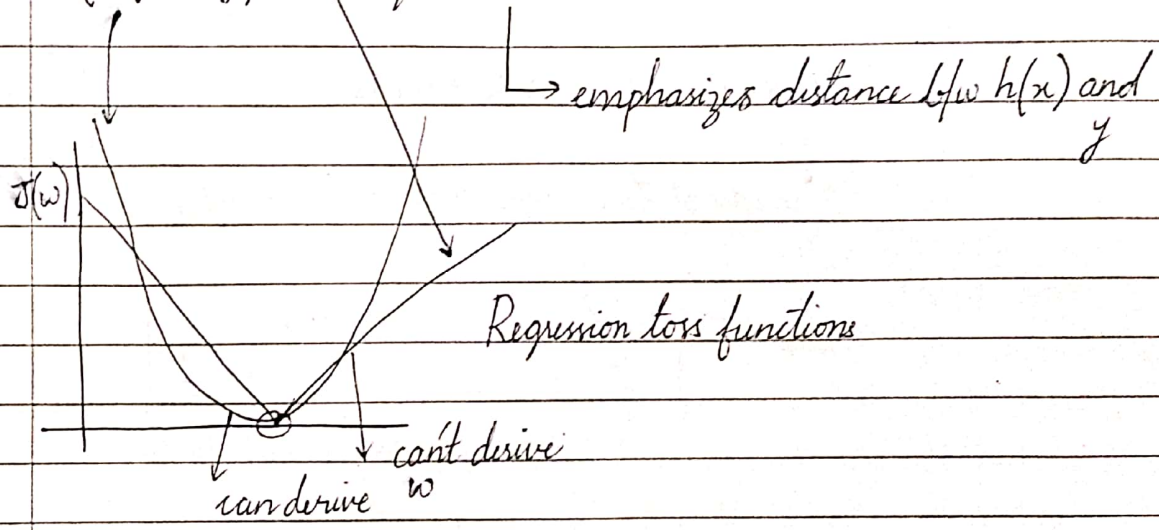 emphasizes distance b/w h(x) and
y
J(w)
Regression loss functions
can't derive
w
can derive